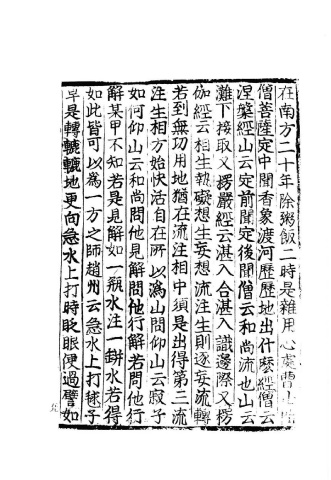 在南方二十年除粥飯二時是雜用心處曹山
僧菩薩定中聞香象渡河歷歷地出什麽經僧云
涅槃經山云定前聞定後聞僧云和尚流也山云
灘下接取又楞嚴經云湛入合湛入識邊際又楞
伽經云相生執礙想生妄想流注生則逐妄流轉
若到無功用地猶在流注相中須是出得第三流
注生相方始快活自在所以潙山問仰山云寂子
如何仰山云和尚問他見解問他行解若問他行
解某甲不知若是見解如一瓶水注一缾水若得
如此皆可以爲一方之師趙州云急水上打毬子
早是轉轆轆地更向急水上打時眨眼便過譬如